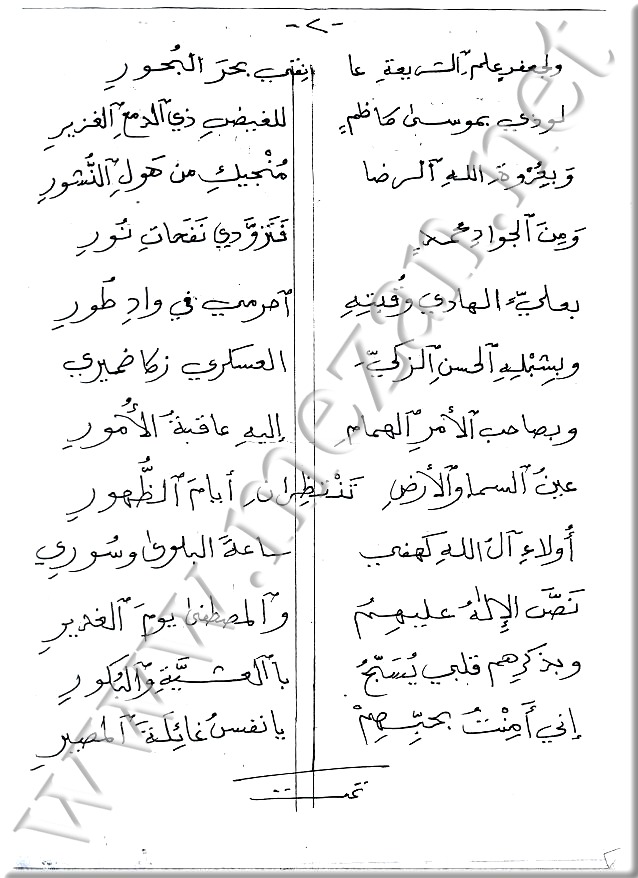 -٢-
ولجعفرٍ علمِ ٱلشريعةِ عا نقي بحرَ البُحورِ
لوذي بموسىٰ كاظمٍ للغيضِ ذي ٱلدمعِ ٱلغزيرِ
وَبعُرْوةِ ٱللهِ ٱلرضا مُنْجيكِ من هَولِ ٱلنُّشورِ
وَمِنَ ٱلجوادِ محمدٍ فَتَزوَّدي نَفَحاتِ نُورِ
بعليٍّ ٱلهادي وقُبتِهِ ٱحرمي في وادِ طُورِ
وبِشِبْلِهِ ٱلحسنِ ٱلزكيِّ العسكري زكا ضميري
وبصاحبِ ٱلأمرِ ٱلهمامِ إليهِ عاقبةُ ٱلأُمورِ
عينُ ٱلسما وٱلأرضِ تَنْتظِرانِ أيامَ ٱلظُّهورِ
أُولاءِ آلُ اللهِ كهفي ساعةَ البلوىٰ وسُوري
نَصَّ الإلهُ عليهِمُ وٱلمصطفىٰ يومَ ٱلغديرِ
وبذكرِهم قلبي يُسَبِّحُ بٱلعشيَّةِ وٱلبُكورِ
إني أَمِنْتُ بحبِّهِمْ يا نفسُ غائِلةَ ٱلمصيرِ
تمت
www.mezan.net